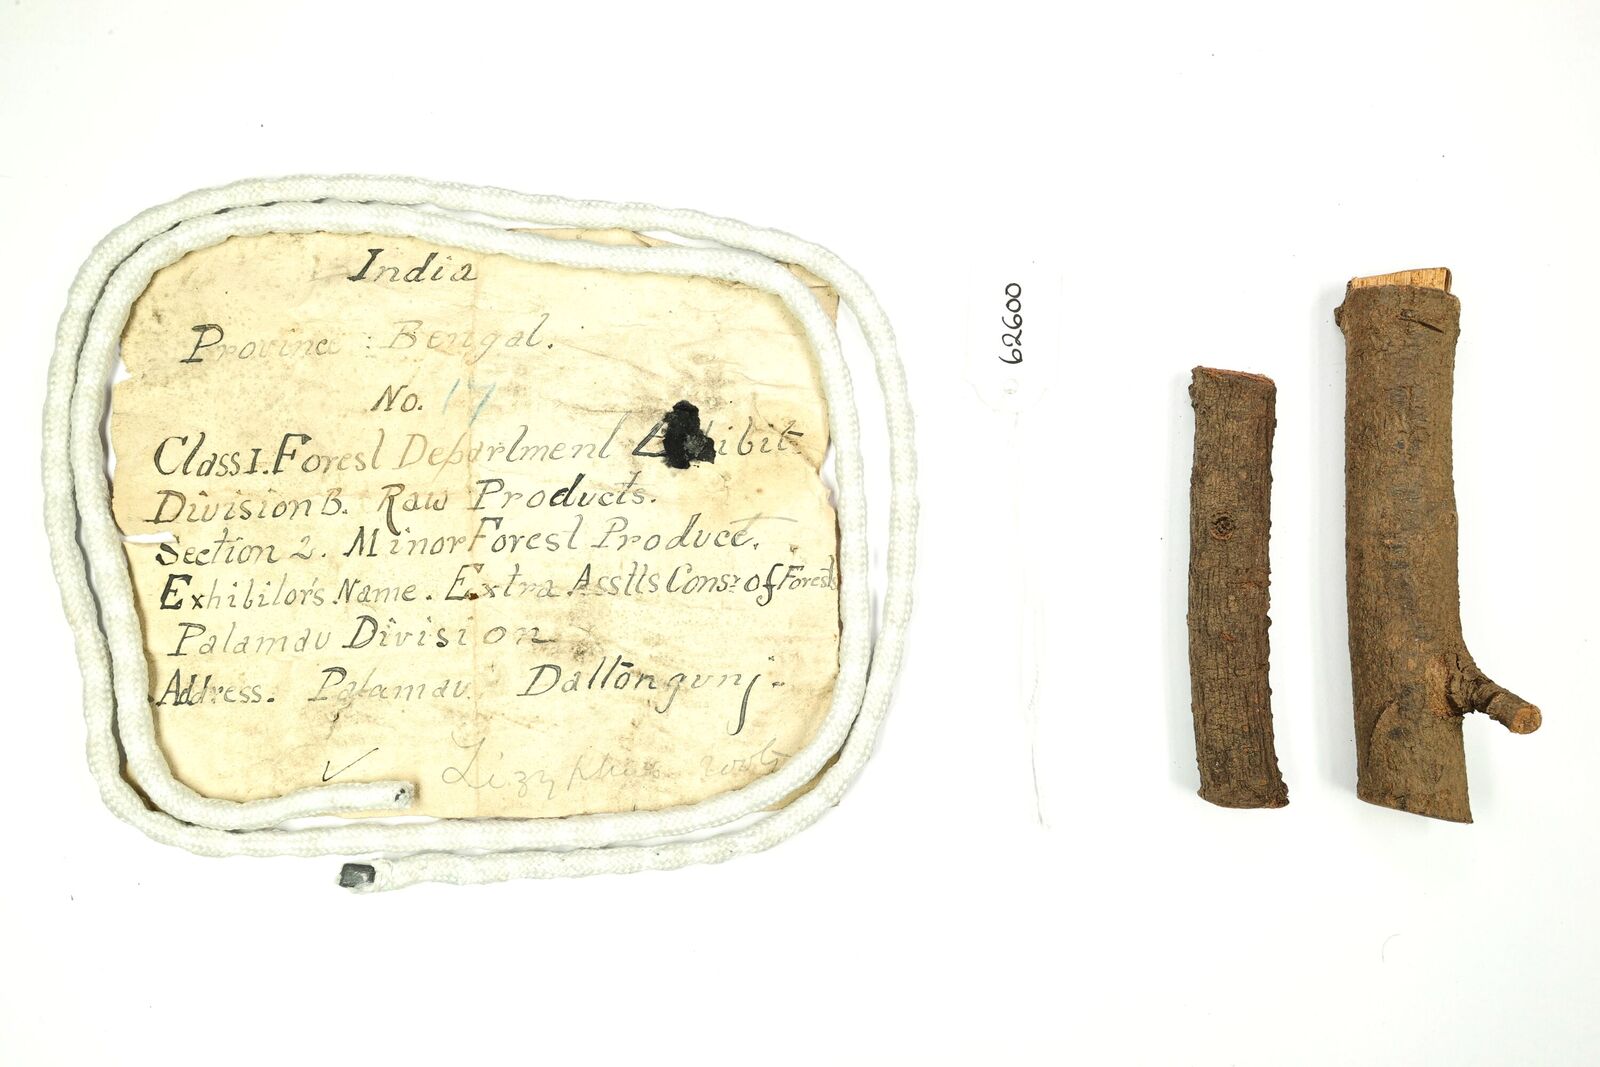 India
Province: Bengal.
No. 17
Class I. Forest Department Exhibit
Division B. Raw Products.
Section 2. Minor Forest Product.
Exhibitor's Name. Extra Asstts Consr of Forests
Palamau Division
Address. Palamau. Daltongunj.
Zizyphus
62600